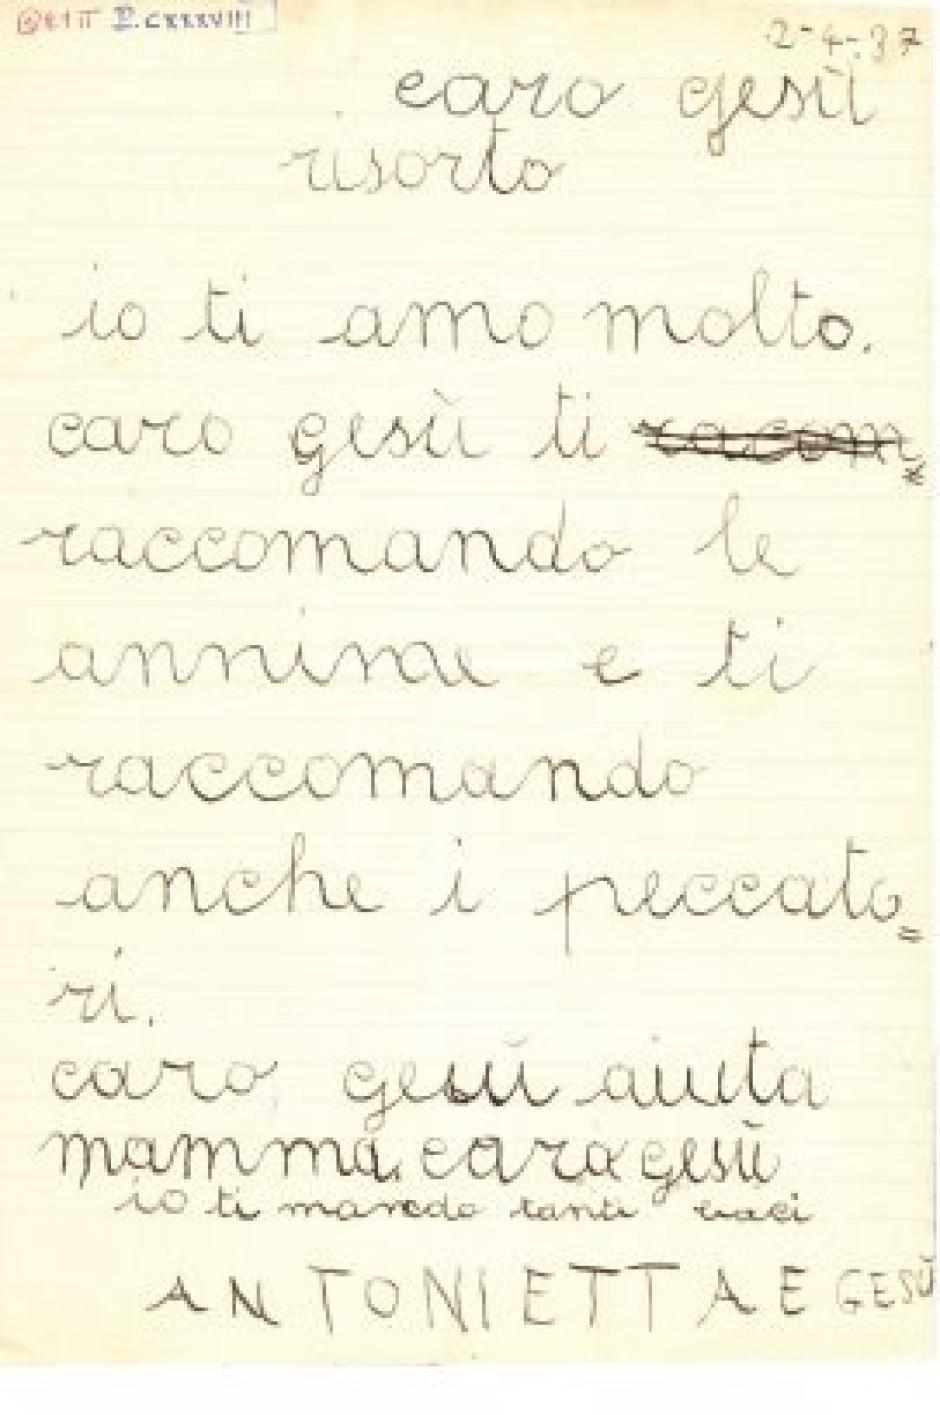 II.CXXXVIII
2-4-37
caro gesù
risorto
io ti amo molto.
caro gesù ti racom
raccomando le
annime e ti
raccomando
anche i peccato=
ri.
caro gesù aiuta
mamma. caro gesù
io ti mando tanti baci
ANTONIETTA E GESÙ